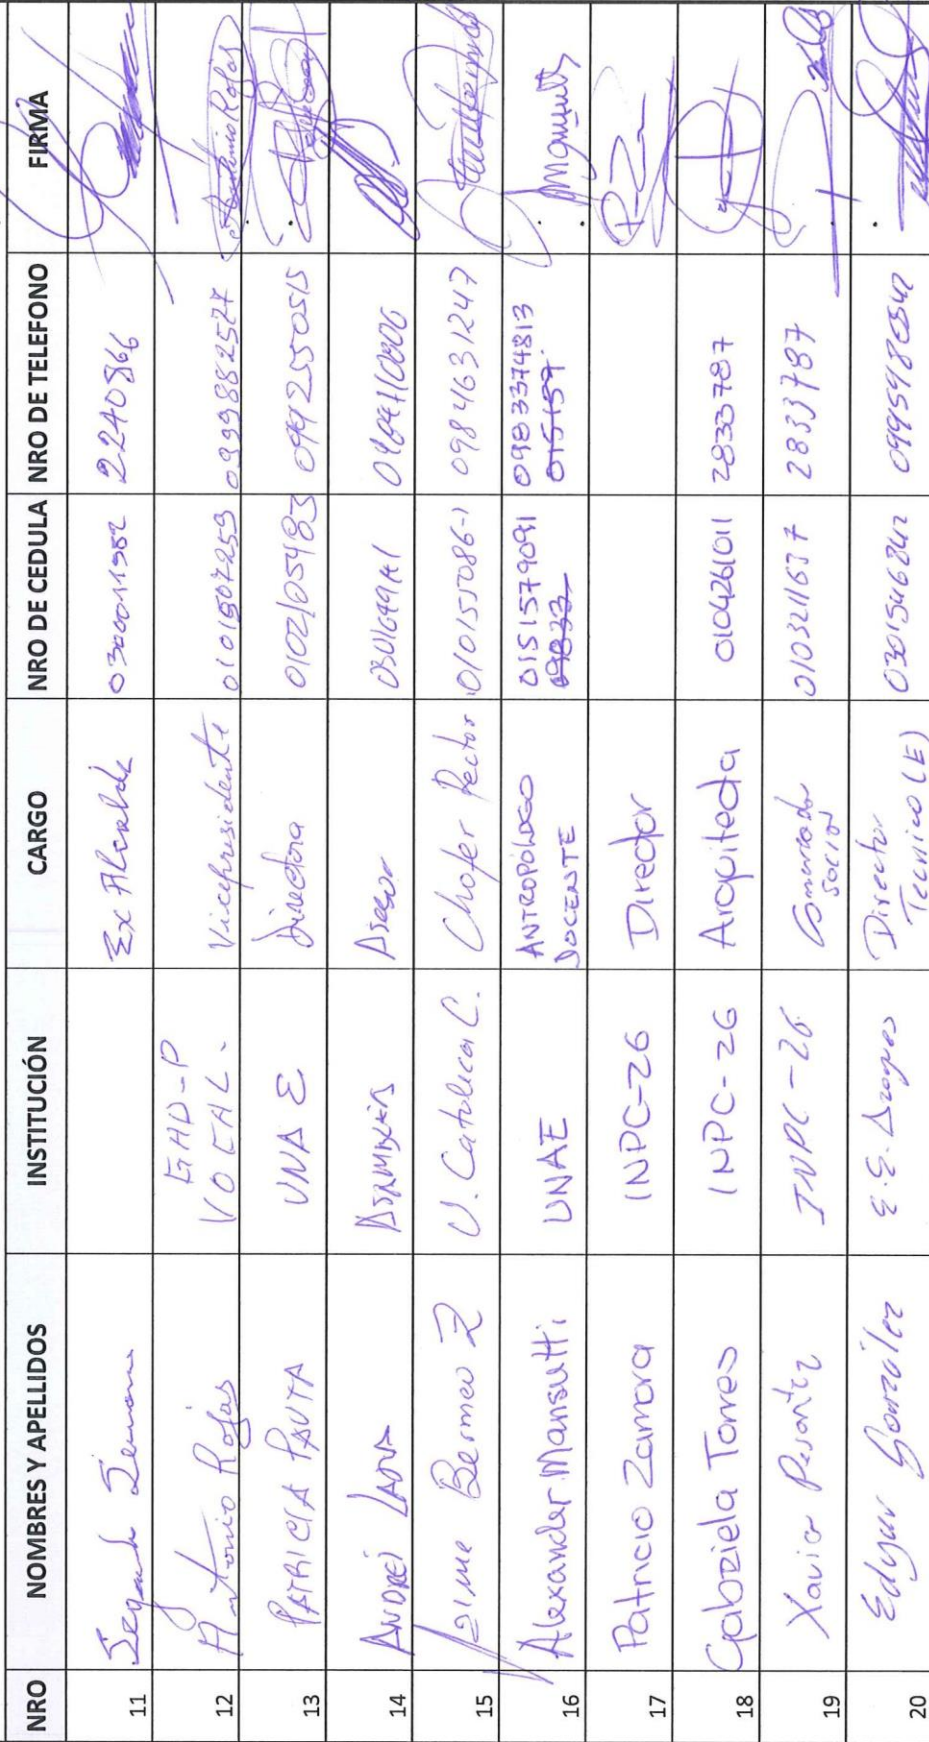 NRO NOMBRES Y APELLIDOS INSTITUCIÓN CARGO NRO DE CEDULA NRO DE TELEFONO FIRMA
11 Segundo Ex Alcalde 2240866
12 Antonio Rojas GAD-P VOCAL. Vicepresidente 0101807253 0999882527 Antonio Rojas
13 PATRICIA PAUTA UNAE Directora 0102105483 0992550515
14 ANDREI Asesor
15 Jaime Bermeo Z U. Catolica C. Chofer Rector 010155086-1 0984631247
16 Alexander Mansutti UNAE ANTROPÓLOGO 0151579091 0983374813
DOCENTE 09833 015157
17 Patricio Zamora INPC-Z6 Director PZ
18 Gabriela Torres INPC-Z6 Arquitecta 0104261011 2833787
19 Xavier Pesantez INPC-Z6 0103211637 2833787
20 Edgar González E.E. Azogues Director 0301546842
Tecnico (E)